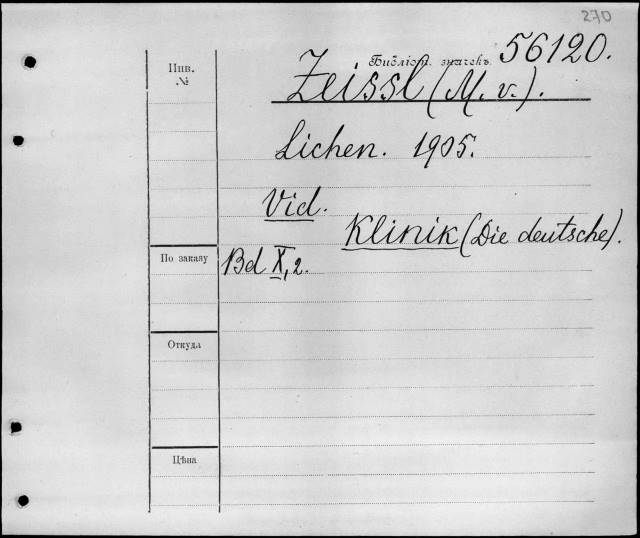 270
Инв. №
Библіот. значекъ 56120.
Zeissl (M. v.).
Lichen. 1905.
Vid.
Klinik (Die deutsche).
По заказу
Bd X, 2.
Откуда
Цѣна